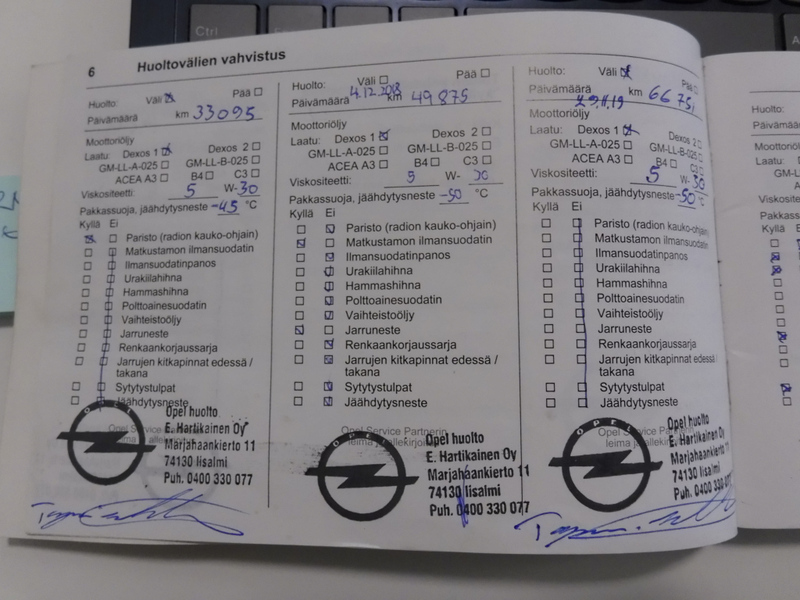 Ctrl
6 Huoltovälien vahvistus
Huolto: Väli Pää
Päivämäärä km 33095
Moottoriöljy
Laatu: Dexos 1 Dexos 2
GM-LL-A-025 GM-LL-B-025
ACEA A3 B4 C3
Viskositeetti: 5 W-30
Pakkassuoja, jäähdytysneste -45 °C
Kyllä Ei
Paristo (radion kauko-ohjain)
Matkustamon ilmansuodatin
Ilmansuodatinpanos
Urakiilahihna
Hammashihna
Polttoainesuodatin
Vaihteistoöljy
Jarruneste
Renkaankorjaussarja
Jarrujen kitkapinnat edessä /
takana
Sytytystulpat
Jäähdytysneste
OPEL
Opel huolto
E. Hartikainen Oy
Marjahaankierto 11
74130 Iisalmi
Puh. 0400 330 077
Huolto: Väli Pää
4.12.2018
Päivämäärä km 49875
Moottoriöljy
Laatu: Dexos 1 Dexos 2
GM-LL-A-025 GM-LL-B-025
ACEA A3 B4 C3
Viskositeetti: 5 W- 30
Pakkassuoja, jäähdytysneste -50 °C
Kyllä Ei
Paristo (radion kauko-ohjain)
Matkustamon ilmansuodatin
Ilmansuodatinpanos
Urakiilahihna
Hammashihna
Polttoainesuodatin
Vaihteistoöljy
Jarruneste
Renkaankorjaussarja
Jarrujen kitkapinnat edessä /
takana
Sytytystulpat
Jäähdytysneste
Opel Service Partnerin
leima ja allekirjoitus
OPEL
Opel huolto
E. Hartikainen Oy
Marjahaankierto 11
74130 Iisalmi
Puh. 0400 330 077
Huolto: Väli Pää
Päivämäärä 29.11.19 km 66751
Moottoriöljy
Laatu: Dexos 1 Dexos 2
GM-LL-A-025 GM-LL-B-025
ACEA A3 B4 C3
Viskositeetti: 5 W- 30
Pakkassuoja, jäähdytysneste -50 °C
Kyllä Ei
Paristo (radion kauko-ohjain)
Matkustamon ilmansuodatin
Ilmansuodatinpanos
Urakiilahihna
Hammashihna
Polttoainesuodatin
Vaihteistoöljy
Jarruneste
Renkaankorjaussarja
Jarrujen kitkapinnat edessä /
takana
Sytytystulpat
Jäähdytysneste
OPEL
Opel huolto
E. Hartikainen Oy
Marjahaankierto 11
74130 Iisalmi
Puh. 0400 330 077
Huolto:
Moottoriöljy
Laatu:
Kyllä